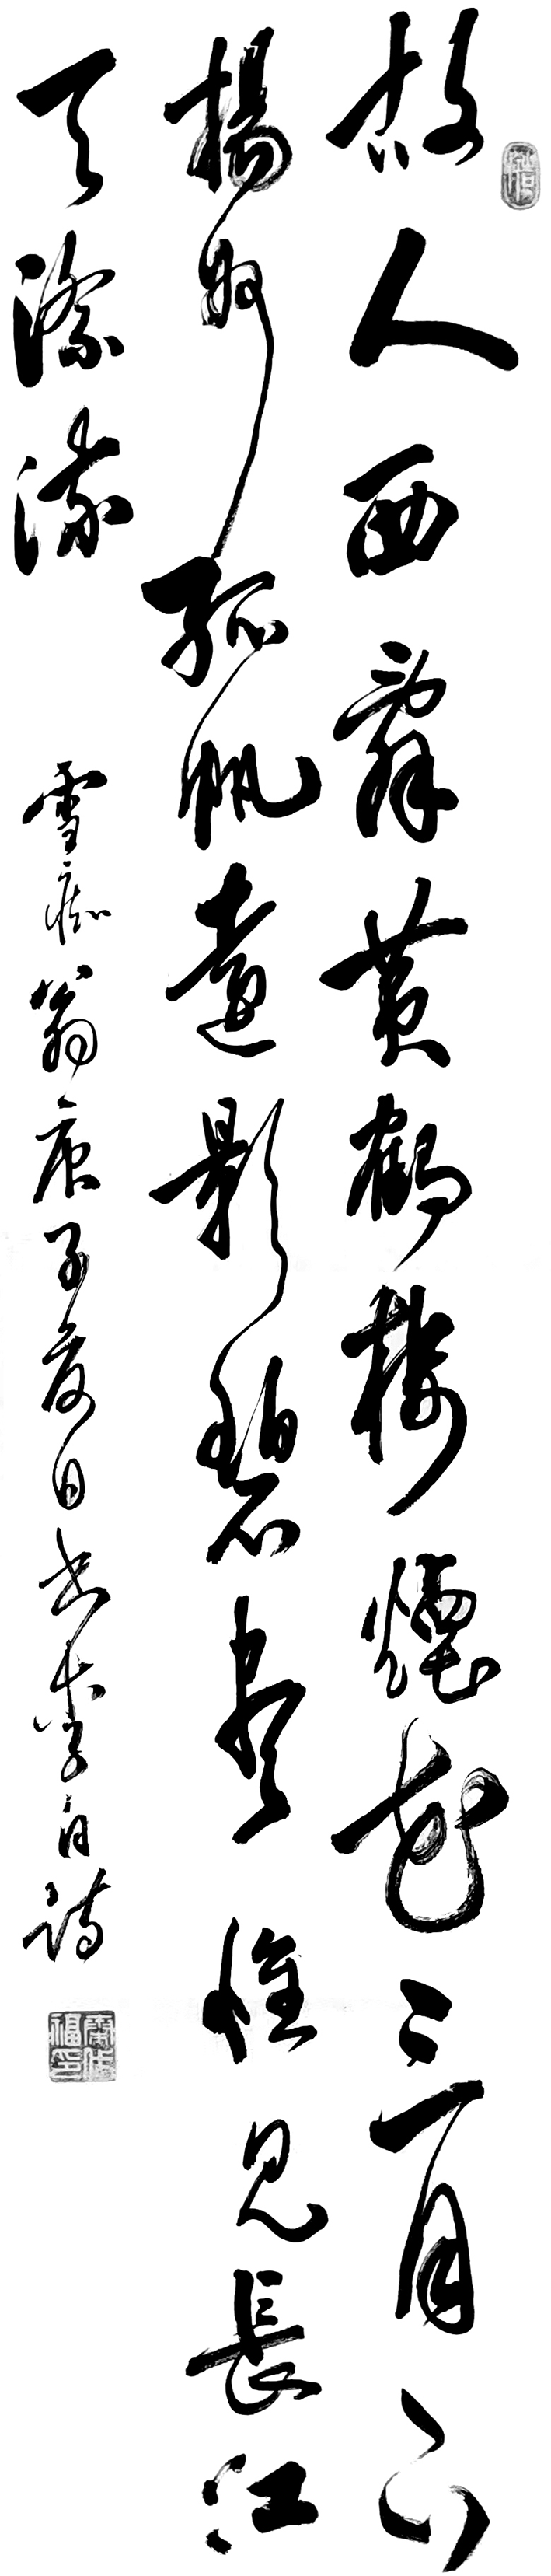 故人西辭黃鶴樓煙花三月下
揚州孤帆遠影碧空盡惟見長江
天際流
雪痴翁庚子夏日書李白詩